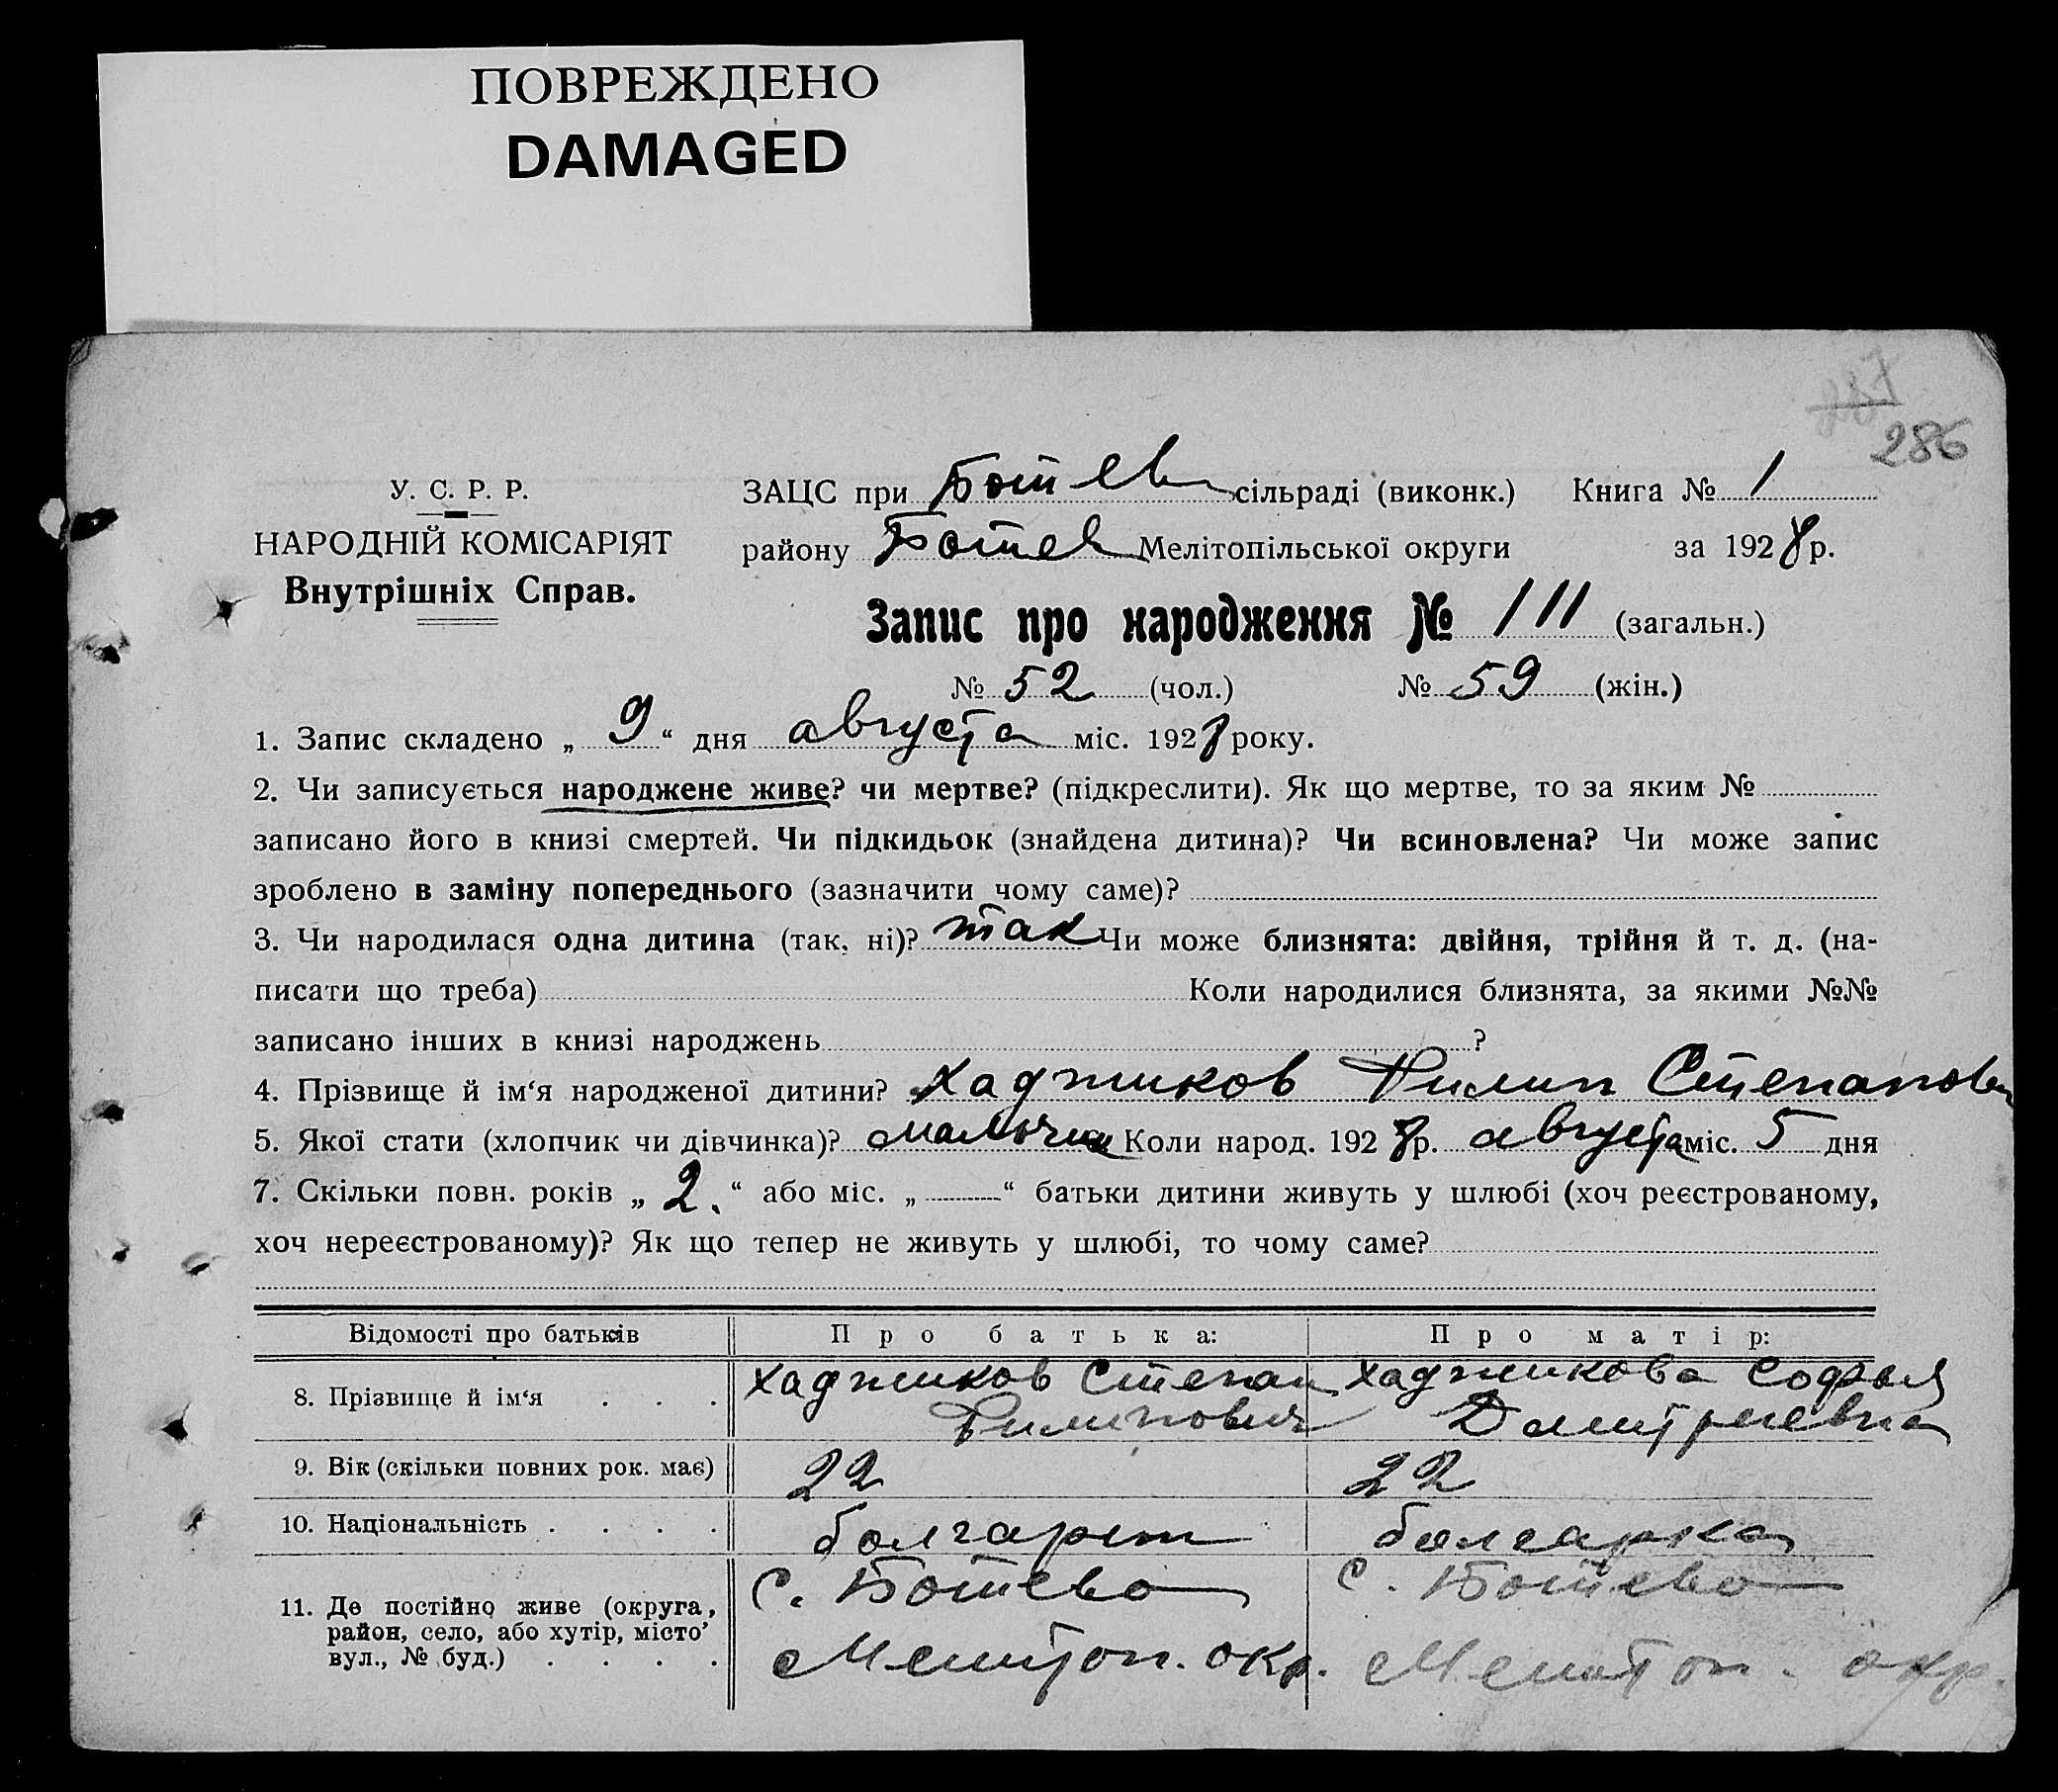 ПОВРЕЖДЕНО
DAMAGED
286
У. С. Р. Р.
НАРОДНІЙ КОМІСАРІЯТ
Внутрішніх Справ.
ЗАЦС при Ботев сільраді (виконк.) Книга № 1
району Ботев Мелітопільської округи за 1928 р.
Запис про народження № 111 (загальн.)
№ 52 (чол.) № 59 (жін.)
1. Запис складено „ 9 “ дня августа міс. 1928 року.
2. Чи записується народжене живе? чи мертве? (підкреслити). Як що мертве, то за яким №
записано його в книзі смертей. Чи підкидьок (знайдена дитина)? Чи всиновлена? Чи може запис
зроблено в заміну попереднього (зазначити чому саме)?
3. Чи народилася одна дитина (так, ні)? так Чи може близнята: двійня, трійня й т. д. (на-
писати що треба) Коли народилися близнята, за якими №№
записано інших в книзі народжень ?
4. Прізвище й ім‘я народженої дитини? Хаджиков Филип Степанов
5. Якої стати (хлопчик чи дівчинка)? мальчик Коли народ. 1928 р. августа міс. 5 дня
7. Скільки повн. років „ 2. “ або міс. „ “ батьки дитини живуть у шлюбі (хоч реєстрованому,
хоч нереєстрованому)? Як що тепер не живуть у шлюбі, то чому саме?
Відомості про батьків Про батька: Про матір:
8. Прізвище й ім‘я . . . Хаджиков Степан Филипович Хаджикова Софья Дмитриевна
9. Вік (скільки повних рок. має) 22 22
10. Національність . . . . болгарин болгарка
11. Де постійно живе (округа, с. Ботево с. Ботево
район, село, або хутір, місто,
вул., № буд.) . . . . Мелитоп. окр. Мелитоп. окр.